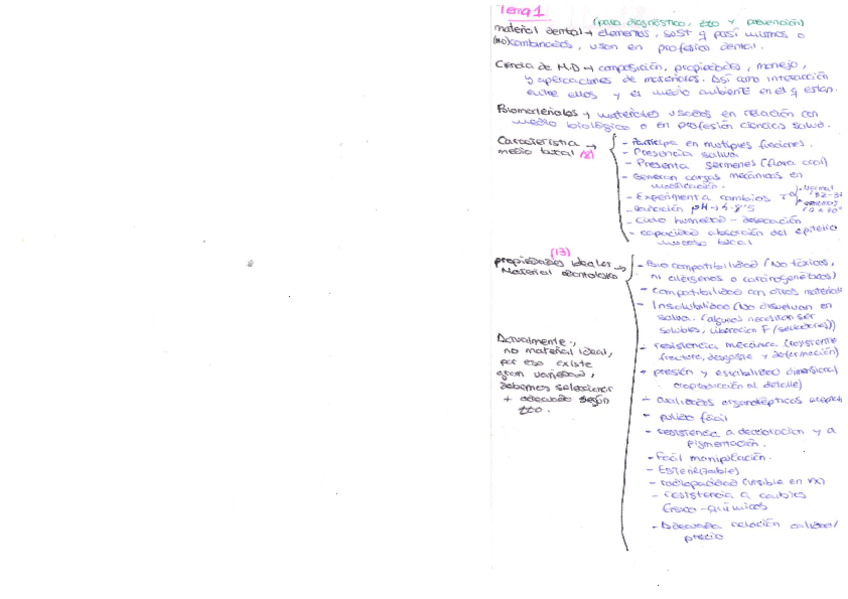 Tema 1
(para diagnóstico, tto y prevención)
material dental → elementos, sust q por sí mismos o
(no) combinados, usan en profesión dental.
Ciencia de M.D → composición, propiedades, manejo,
y aplicaciones de materiales. Así como interacción
entre ellos y el medio ambiente en el q están.
Biomateriales → materiales usados en relación con
medio biológico o en profesión ciencias salud.
Característica →
medio bucal (8)
- Participa en multiples funciones.
- Presencia saliva
- Presenta gérmenes (flora oral)
- Generan cargas mecánicas en
masticación.
- Experimenta cambios Tª
- Variación pH → 4-8'5
- Ciclo humedad - desecación
- capacidad absorción del epitelio
mucoso bucal
(13)
propiedades ideales →
Material odontológico
- Biocompatibilidad (No tóxicos,
ni alérgenos o carcinogenéticos)
- compatibilidad con otros materiales
- Insolubilidad (No disuelvan en
saliva. (algunos necesitan ser
solubles, liberación F (selladores))
- resistencia mecánica (resistente
fractura, desgaste y deformación)
- presión y estabilidad dimensional
(reproducción al detalle)
- cualidades organolépticas acept
- pulido fácil
- resistencia a decoloración y a
pigmentación.
- Fácil manipulación.
- Esterilizable)
- radiopacidad (visible en rx)
- resistencia a cambios
físico-químicos
- Adecuada relación calidad/
precio
Actualmente,
no material ideal,
por eso existe
gran variedad,
debemos seleccionar
+ adecuado según
tto.